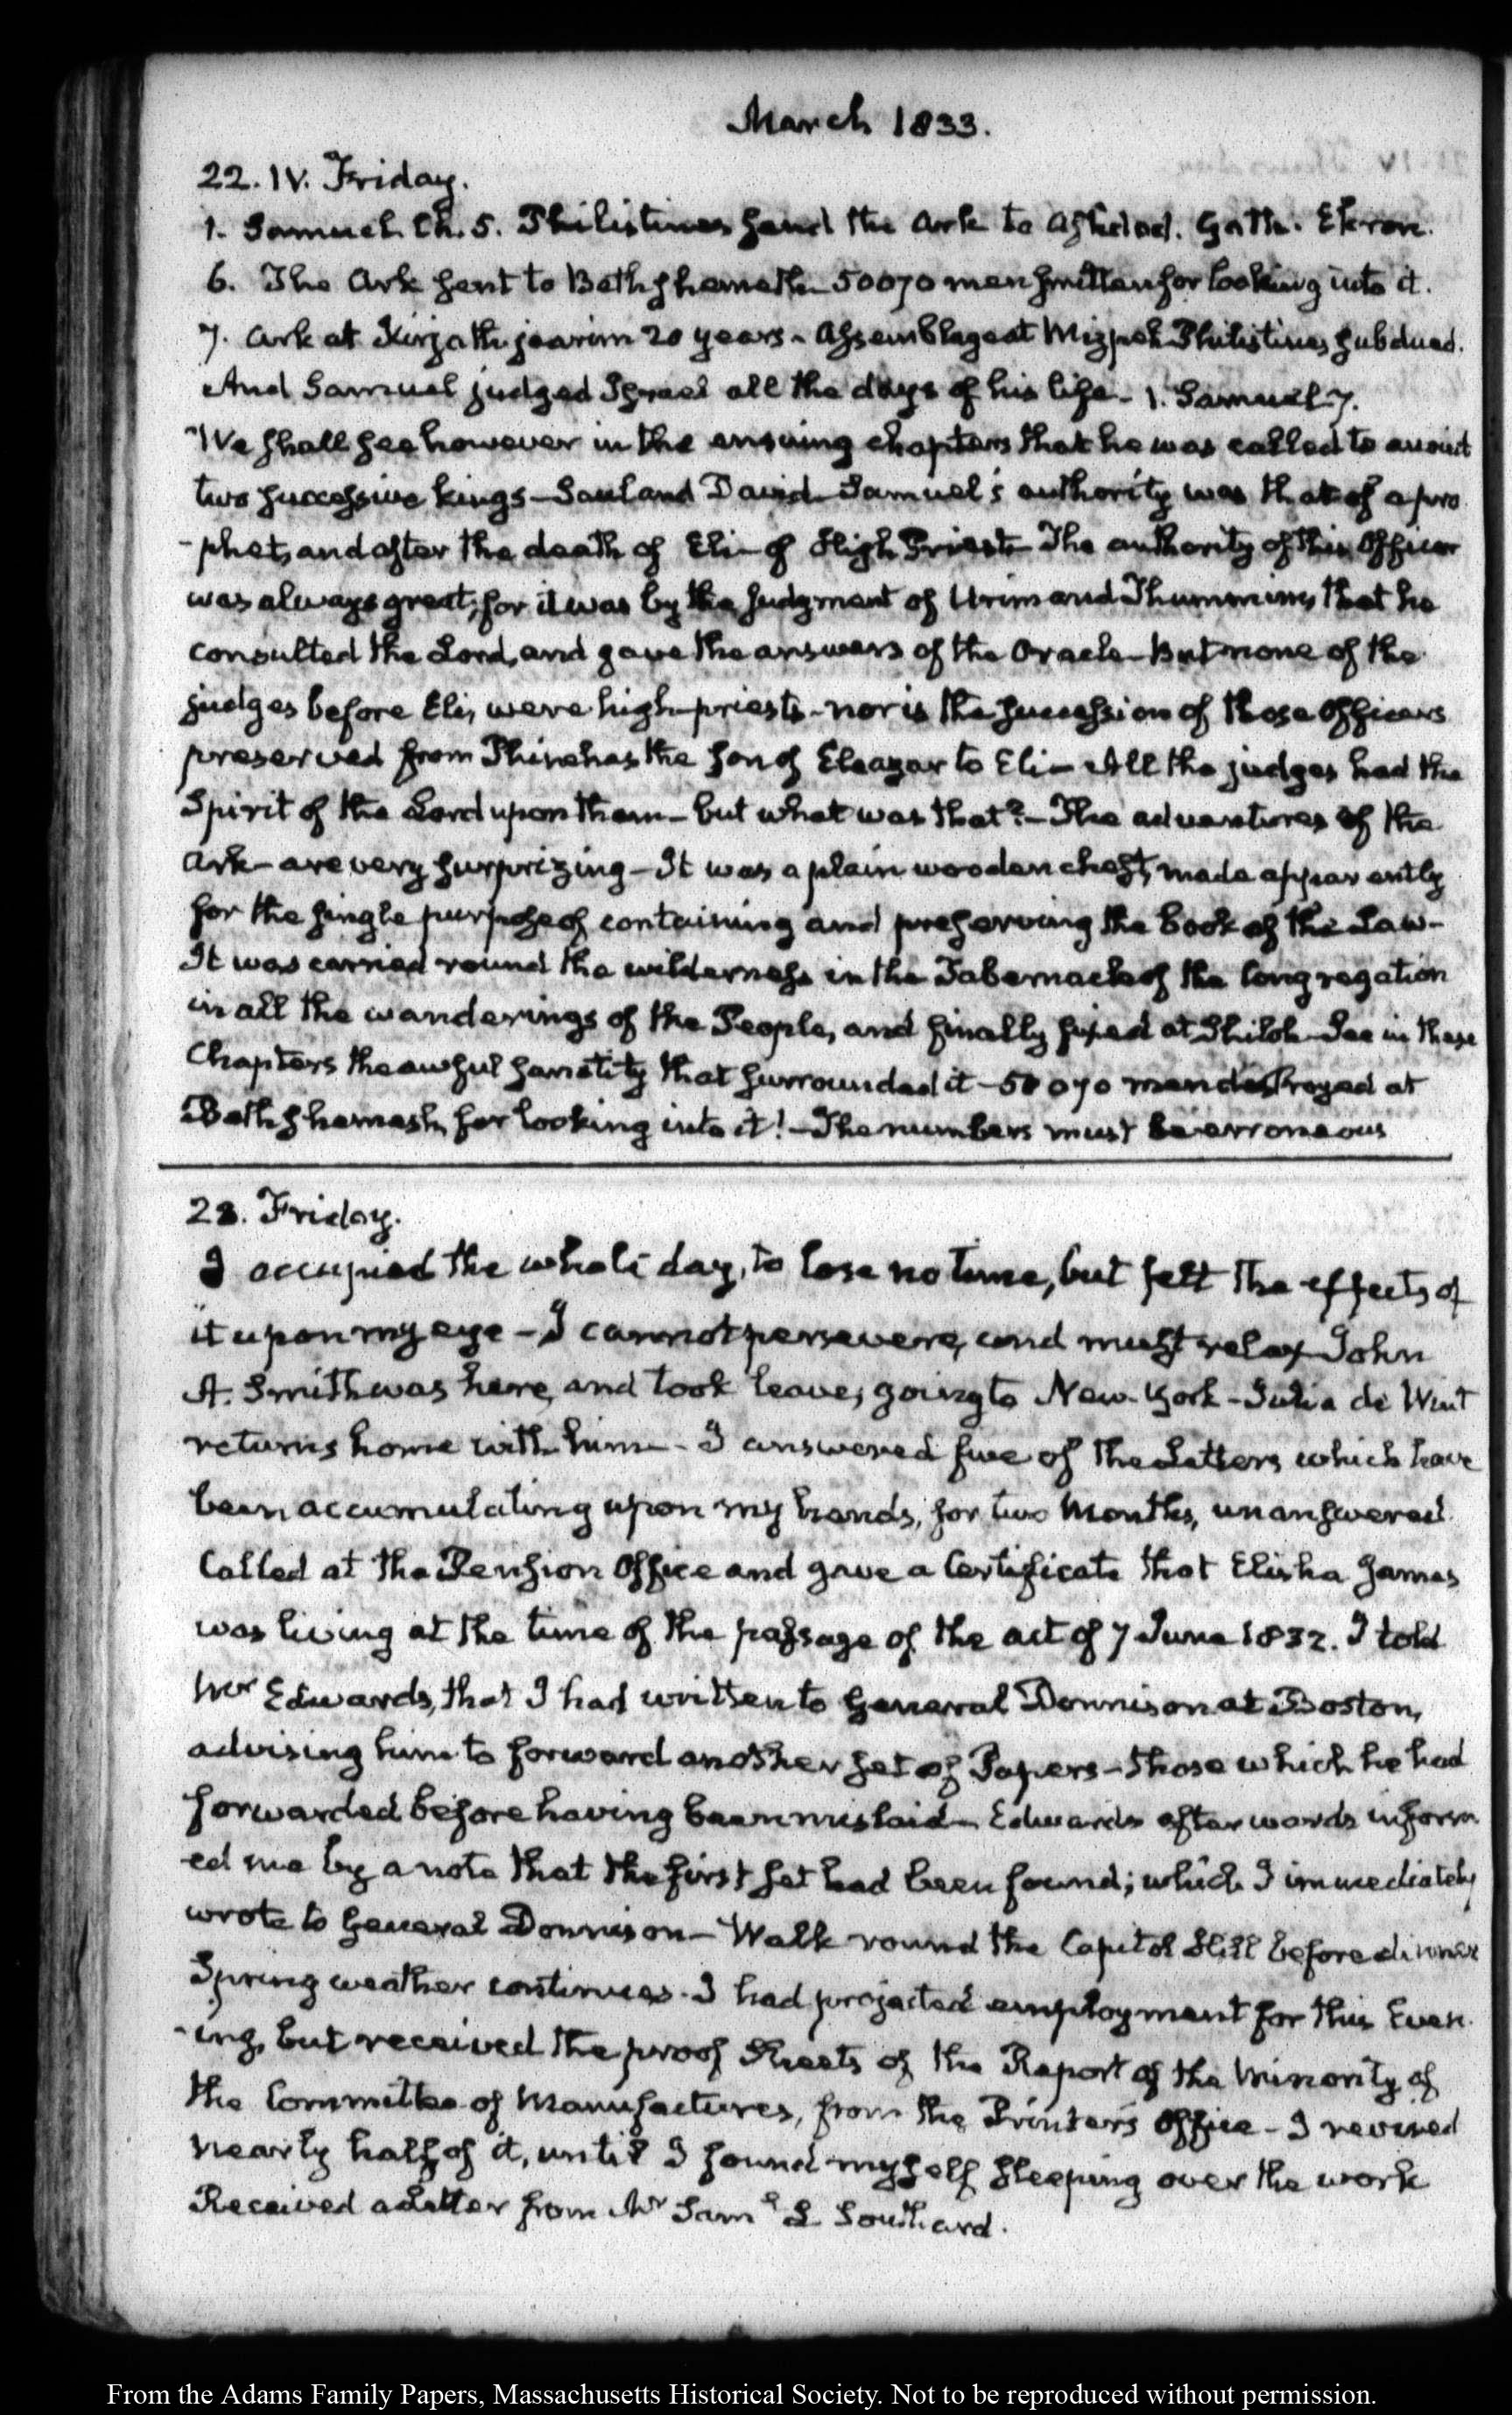 March 1833.
22. IV. Friday.
1. Samuel. Ch. 5. Philistines send the Ark to Ashdod. Gath. Ekron.
6. The Ark sent to Bethshemeth 50070 men smitten for looking into it.
7. Ark at Kirjath jearim 20 years - Assemblage at Mizpeh Philistines subdued.
And Samuel judged Israel all the days of his life - 1. Samuel 7.
We shall see however in the ensuing chapters that he was called to anoint
two successive kings - Saul and David - Samuel's authority was that of a pro
-phet, and after the death of Eli - of High Priest - The authority of this Officer
was always great, for it was by the judgment of Urim and Thummim, that he
consulted the Lord, and gave the answers of the Oracle - But none of the
judges before Eli, were high-priests - nor is the succession of those Officers
preserved from Phinehas the son of Eleazar to Eli - All the judges had the
Spirit of the Lord upon them - but what was that? - The adventures of the
Ark - are very surprizing - It was a plain wooden chest, made apparently
for the single purpose of containing and preserving the book of the Law -
It was carried round the wilderness in the Tabernacle of the Congregation
in all the wanderings of the People, and finally fixed at Shiloh - See in these
Chapters the awful sanctity that surrounded it - 50070 men destroyed at
Bethshemesh, for looking into it! - The numbers must be erroneous
22. Friday.
I occupied the whole day, to lose no time, but felt the effects of
it upon my eye - I cannot persevere, and must relax - John
A. Smith was here, and took leave, going to New-York - Julia de Wint
returns home with him - I answered five of the Letters which have
been accumulating upon my hands, for two Months, unanswered.
Called at the Pension Office and gave a Certificate that Elisha James
was living at the time of the passage of the act of 7 June 1832. I told
Mr Edwards, that I had written to General Donnison at Boston,
advising him to forward another set of Papers - those which he had
forwarded before having been mislaid - Edwards afterwards inform
-ed me by a note that the first set had been found; which I immediately
wrote to General Donnison - Walk round the Capitol Hill before dinner
Spring weather continues - I had projected employment for this Even
-ing, but received the proof Sheets of the Report of the Minority of
the Committee of Manufactures, from the Printer's Office - I revised
nearly half of it, until I found myself sleeping over the work
Received a Letter from Mr Saml L Southard.
From the Adams Family Papers, Massachusetts Historical Society. Not to be reproduced without permission.